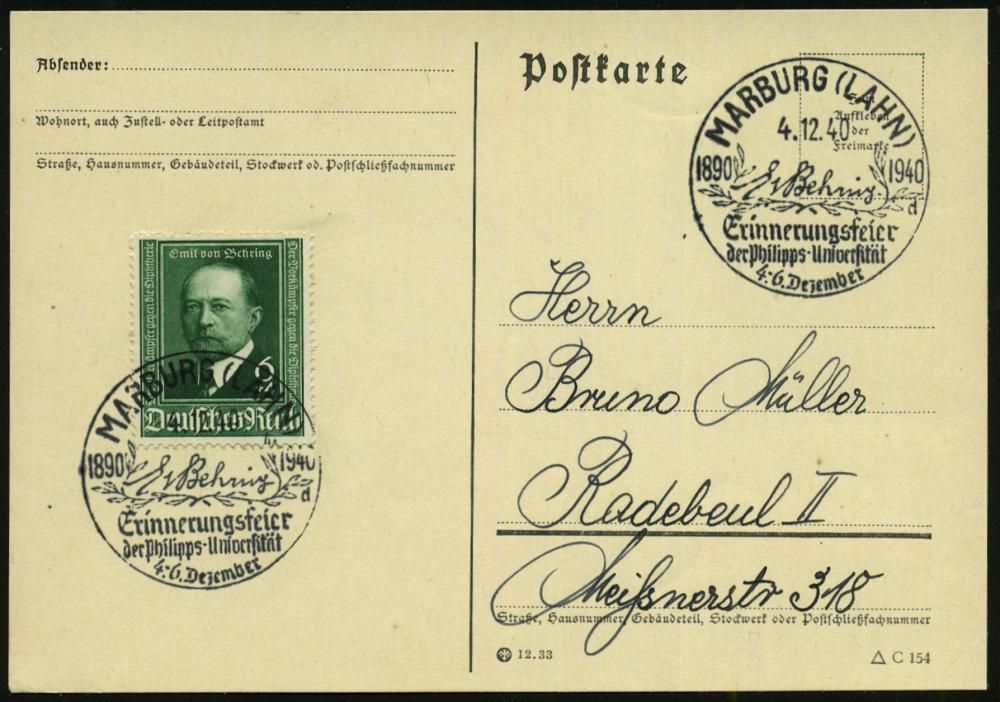 Absender:
Wohnort, auch Zustell- oder Leitpostamt
Straße, Hausnummer, Gebäudeteil, Stockwerk od. Postschließfachnummer
Emil von Behring
Der Vorkämpfer gegen die Diphtherie
6
Deutsches Reich
MARBURG (LAHN)
4.12.40
1890 1940
Ev Behring
d
Erinnerungsfeier
der Philipps-Universität
4.-6. Dezember
Postkarte
Aufkleben
der
Freimarke
MARBURG (LAHN)
4.12.40
1890 1940
Ev Behring
d
Erinnerungsfeier
der Philipps-Universität
4.-6. Dezember
Herrn
Bruno Müller
Radebeul II
Meißnerstr 318
Straße, Hausnummer, Gebäudeteil, Stockwerk oder Postschließfachnummer
12.33
C 154